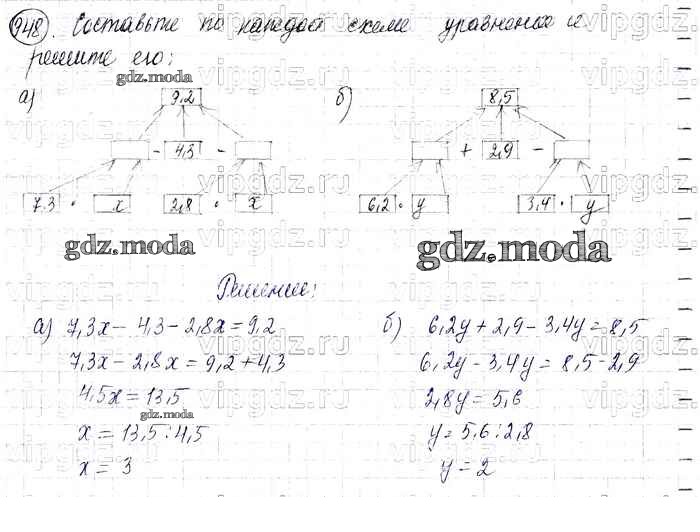 948. Составьте по каждой схеме уравнение и
решите его:
gdz.moda
а) 9,2 б) 8,5
- 4,3 - + 2,9 -
7.3 · x 2,8 · x 6,2 · y 3,4 · y
gdz.moda gdz.moda
Решение:
а) 7,3x - 4,3 - 2,8x = 9,2 б) 6,2y + 2,9 - 3,4y = 8,5
7,3x - 2,8x = 9,2 + 4,3 6,2y - 3,4y = 8,5 - 2,9
4,5x = 13,5 2,8y = 5,6
gdz.moda
x = 13,5 : 4,5 y = 5,6 : 2,8
x = 3 y = 2
vipgdz.ru